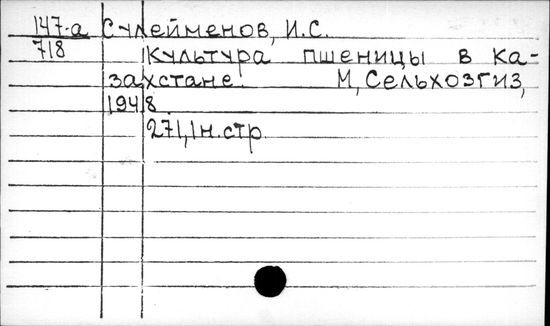 147-а Сулейменов, И.С.
718
Культура пшеницы в ка-
захстане. М, Сельхозгиз,
1948.
271, 1н. стр.